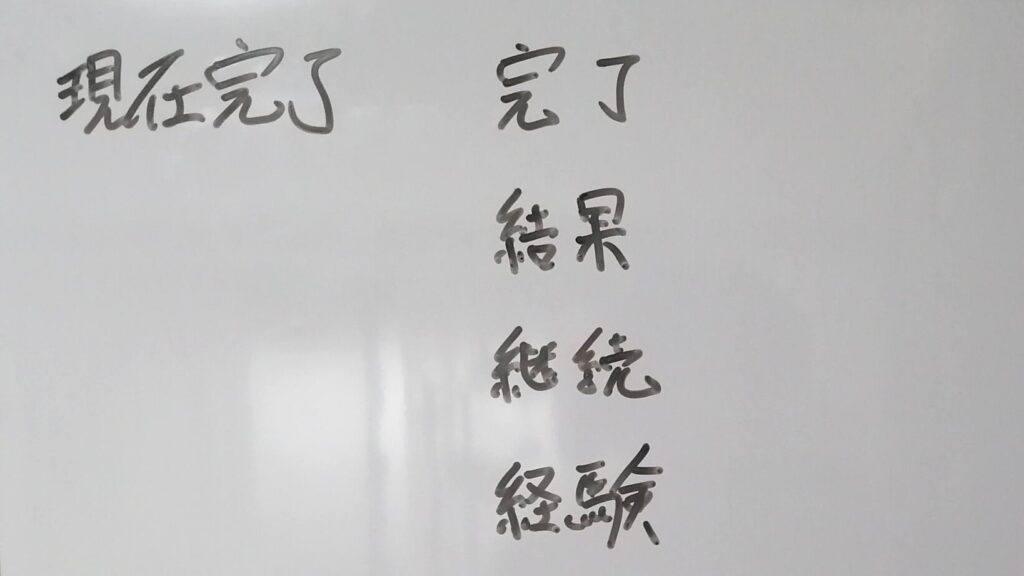 現在完了 完了
結果
継続
経験